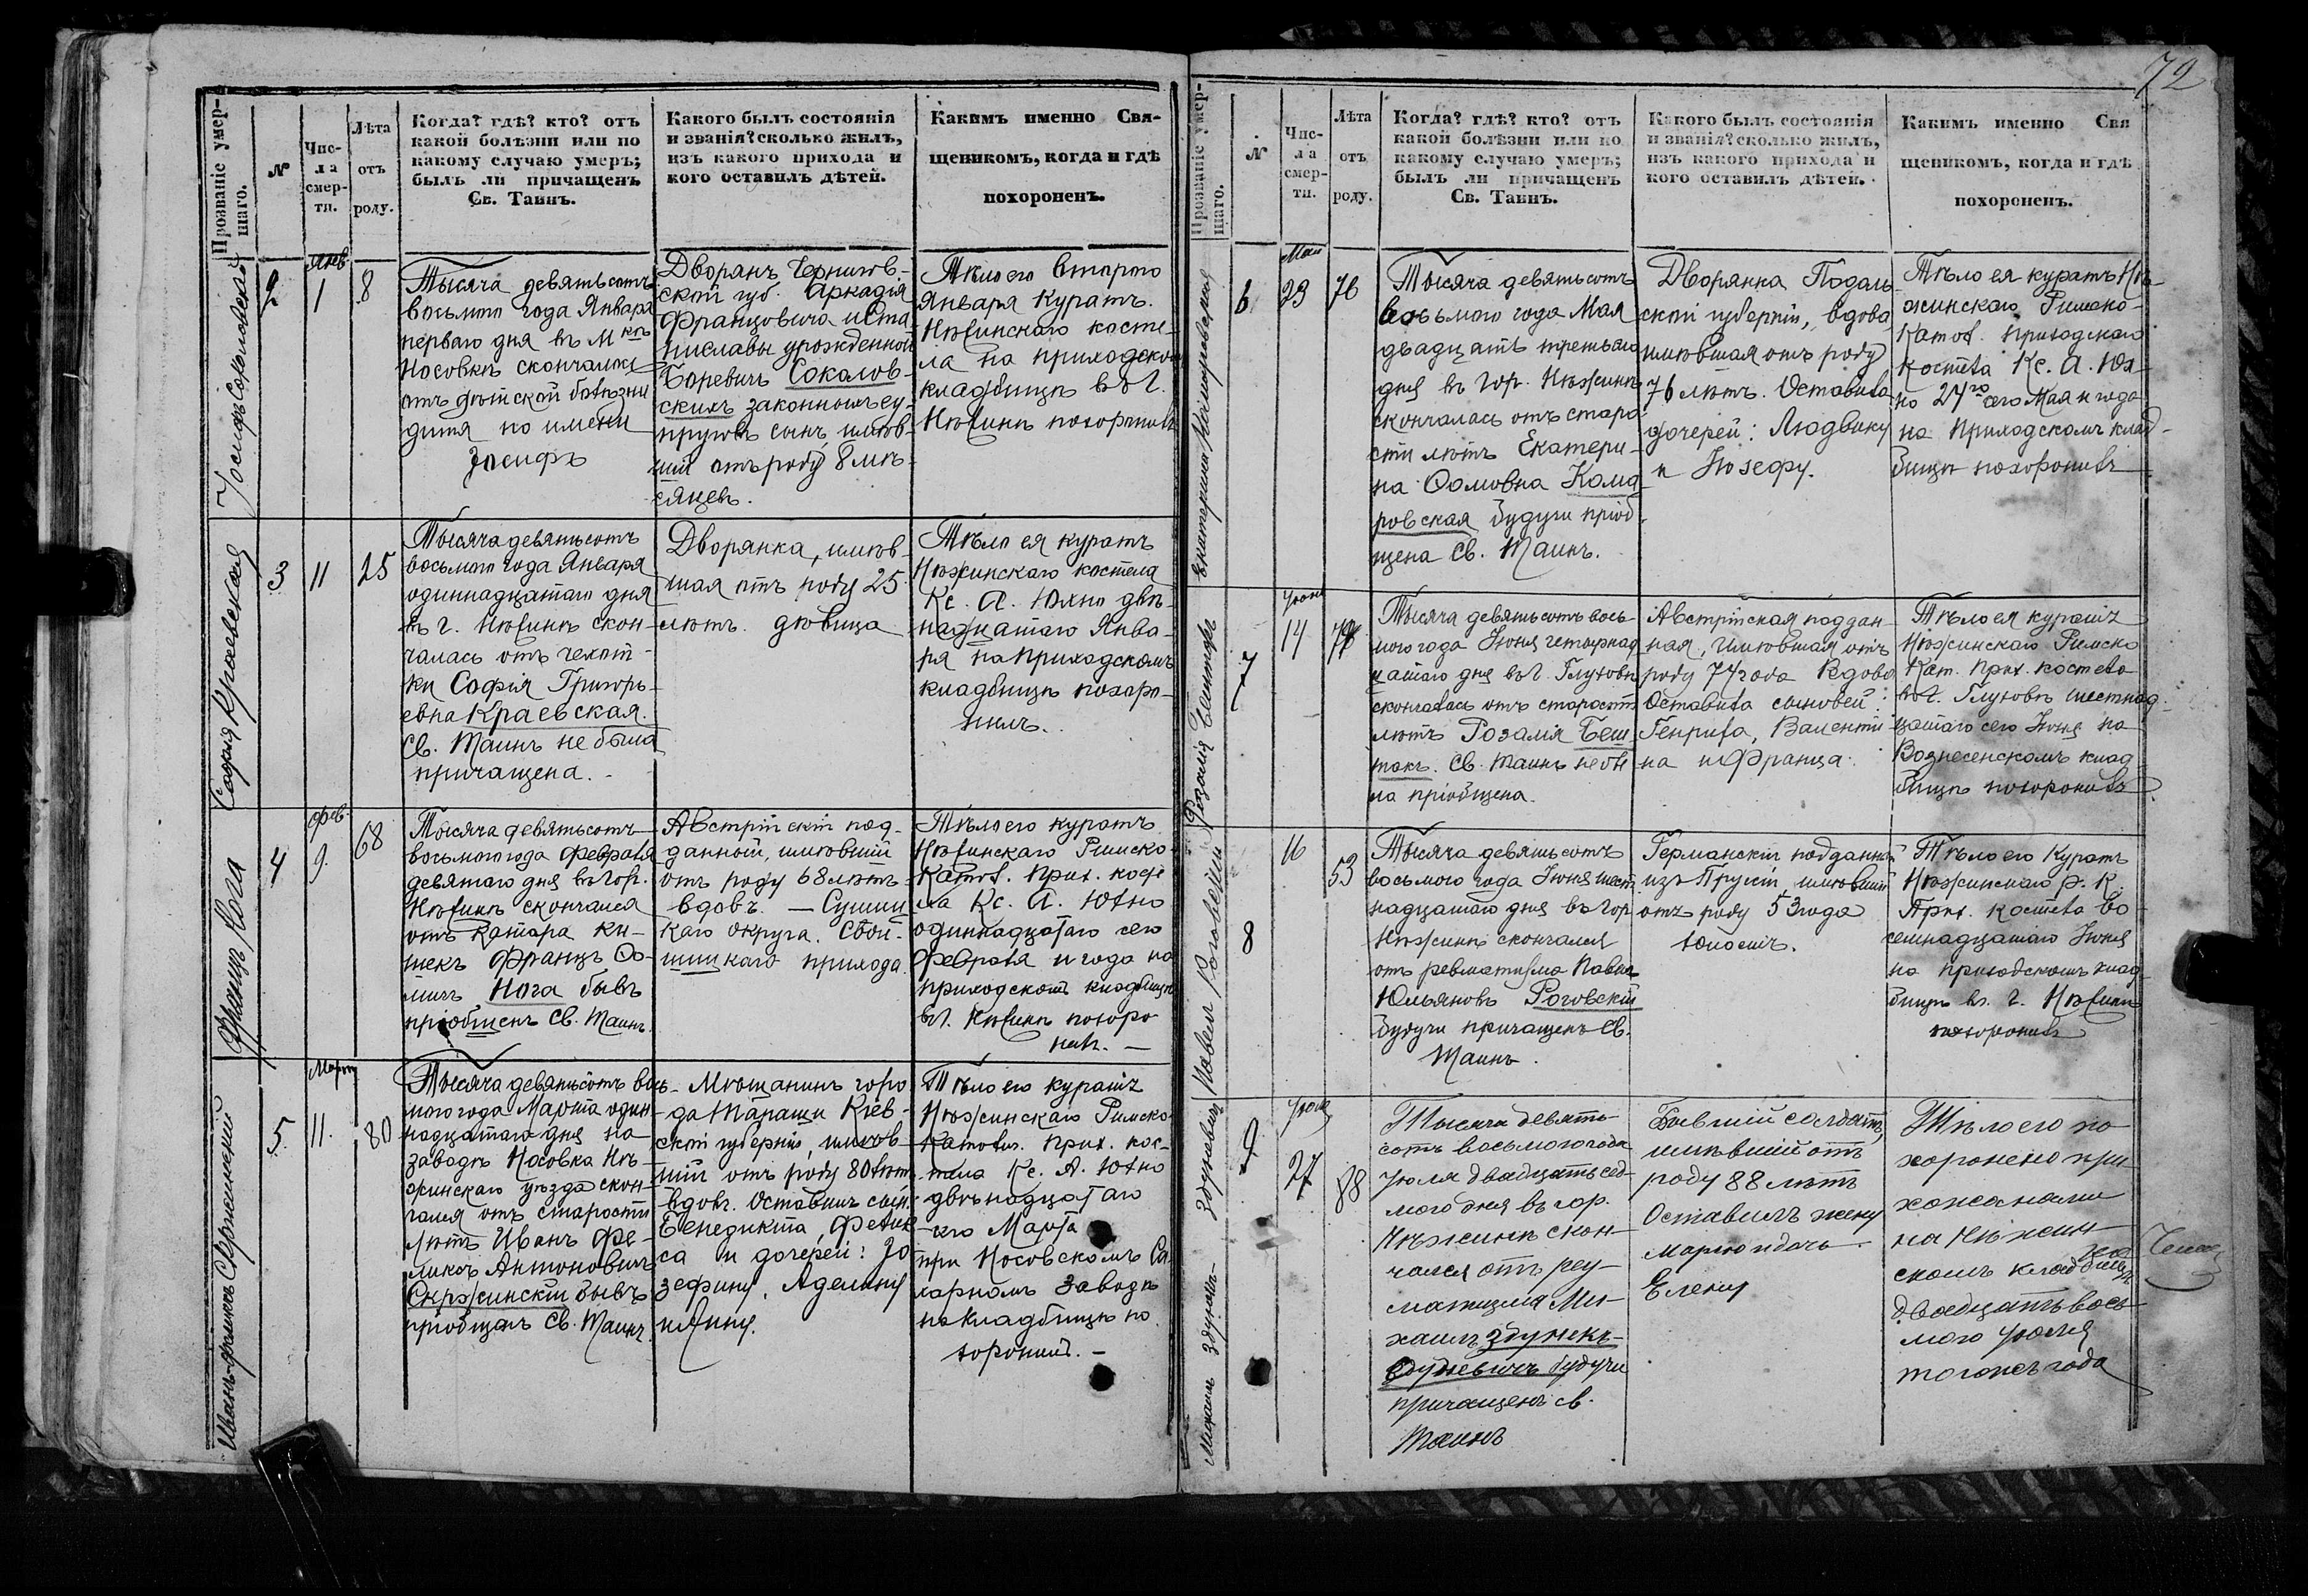 72
Прозваніе умер-
шаго.
№
Чис-
ла
смер-
ти.
Лѣта
отъ
роду.
Когда? гдѣ? кто? отъ
какой болѣзни или по
какому случаю умеръ;
былъ ли причащенъ
Св. Таинъ.
Какого былъ состоянія
и званія? сколько жилъ,
изъ какого прихода и
кого оставилъ дѣтей.
Какимъ именно Свя-
щеникомъ, когда и гдѣ
похороненъ.
Іосифъ Соколовскій
2
Янв
1
8
Тысяча девятьсотъ
восьмого года Января
перваго дня въ М
Носовкѣ скончалось
отъ дѣтской болѣзни
дитя по имени
Іосифъ
Дворянъ Чернигов-
ской губ. Аркадія
Францовича и Ста-
ниславы урожденной
Боревичъ Соколов-
скихъ законныхъ су-
пруговъ сынъ, имѣв-
шій отъ роду 8 мѣ-
сяцевъ.
Тѣло его второго
Января Куратъ
Нѣжинскаго косте-
ла на приходском
кладбищѣ въ г.
Нѣжинѣ похоронилъ
Софія Краевская
3
11
25
Тысяча девятьсотъ
восьмого года Января
одиннадцатаго дня
въ г. Нѣжинѣ скон-
чалась отъ чехот-
ки Софія Григорь-
евна Краевская.
Св. Таинъ не была
причащена.
Дворянка, имѣв-
шая отъ роду 25
лѣтъ. дѣвица
Тѣло ея куратъ
Нѣжинскаго костела
Кс. А. Юхно двѣ-
надцатаго Янва-
ря на Приходскомъ
кладбищѣ похоро-
нилъ.
Францъ Нога
4
Фев.
9.
68
Тысяча девятьсотъ
восьмого года Февраля
девятаго дня въ гор.
Нѣжинѣ скончался
отъ катара ки-
шекъ Францъ Ѳо-
мичъ Нога бывъ
пріобщенъ Св. Таинъ.
Австрійскій под-
данный, имѣвшій
отъ роду 68 лѣтъ
вдовъ. —
каго округа.
прихода.
Тѣло его куратъ
Нѣжинскаго Римско
Катол. Прих. косте
ла Кс. А. Юхно
одиннадцатаго сего
Февраля и года на
приходскомъ кладбищѣ
въ г. Нѣжинѣ похоро
нилъ. —
5
Мартъ
11.
80
Тысяча девятьсотъ вось-
мого года Марта один-
надцатаго дня на
заводѣ Носовка Нѣ-
жинскаго уѣзда скон-
чался отъ старости
лѣтъ Иванъ Фе-
ликсъ Антоновичъ
бывъ
пріобщенъ Св. Таинъ.
Мѣщанинъ горо
да Таращи Кіев-
ской губерніи, имѣв-
шій отъ роду 80 лѣтъ
вдовъ. Оставилъ сын.
Бенедикта, Фелик
са и дочерей: Іо
зефину, Аделину
и Анну.
Тѣло его куратъ
Нѣжинскаго Римско-
Католич. Прих. кос-
тела Кс. А. Юхно
двѣнадцатаго
сего Марта
при Носовскомъ Са
харномъ заводѣ
на кладбищѣ по
хоронилъ. —
Прозваніе умер-
шаго.
№
Чис-
ла
смер-
ти.
Лѣта
отъ
роду.
Когда? гдѣ? кто? отъ
какой болѣзни или по
какому случаю умеръ;
былъ ли причащенъ
Св. Таинъ.
Какого былъ состоянія
и званія? сколько жилъ,
изъ какого прихода и
кого оставилъ дѣтей.
Какимъ именно Свя
щеникомъ, когда и гдѣ
похороненъ.
Екатерина
6
Май
23
76
Тысяча девятьсотъ
восьмого года Мая
двадцать третьяго
дня въ гор. Нѣжинѣ
скончалась отъ старо
сти лѣтъ Екатери-
на Ѳомовна Кома
ровская будучи пріоб
щена Св. Таинъ.
Дворянка Подоль
ской губерніи, вдова
имѣвшая отъ роду
76 лѣтъ. Оставила
дочерей: Людвику
и Іозефу.
Тѣло ея куратъ Нѣ-
жинскаго Римско-
Катол. приходскаго
Костела Кс. А. Юх-
но 24го сего Мая и года
на Приходскомъ клад-
бищѣ похоронилъ
Розалія Бештакъ
7
Іюня
14
74
Тысяча девятьсотъ вось-
мого года Іюня четырнад
цатаго дня въ г. Глуховѣ
скончалась отъ старости
лѣтъ Розалія Беш
такъ. Св. Таинъ не бы
ла пріобщена.
Австрійская поддан-
ная, имѣвшая отъ
роду 74 года Вдова
Оставила сыновей:
Генриха, Валенти
на и Франца.
Тѣло ея куратъ
Нѣжинскаго Римско
Кат. Прих. костела
въ г. Глуховѣ шестнад
цатаго сего Іюня на
Вознесенскомъ клад
бищѣ похоронилъ
Павелъ Роговскій
8
16
53
Тысяча девятьсотъ
восьмого года Іюня шест
надцатаго дня въ гор
Нѣжинѣ скончался
отъ ревматизма Павелъ
Юльяновъ Роговскій
будучи причащенъ Св.
Таинъ.
Германскій подданный
изъ Пруссіи, имѣвшій
отъ роду 53 года
Тѣло его Куратъ
Нѣжинскаго Р. К.
Прих. Костела во
семнадцатаго Іюня
на приходскомъ клад
бищѣ въ г. Нѣжинѣ
похоронилъ
Михаилъ Здунекъ- Здуневичъ
9
Іюля
27
88
Тысяча девять-
сотъ восьмого года
Іюля двадцать сед-
мого дня въ гор.
Нѣжинѣ скон-
чался отъ рев-
матизма Ми-
хаилъ Здунекъ-
Здуневичъ будучи
причащенъ св.
Таинъ
Бывшій солдатъ,
имѣвшій отъ
роду 88 лѣтъ
Оставилъ жену
Марію и дочь
Елену
Тѣло его по
хоронено при
хожанами
на Нѣжин
скомъ кладбищѣ
двадцать вось-
мого Іюля
того же года